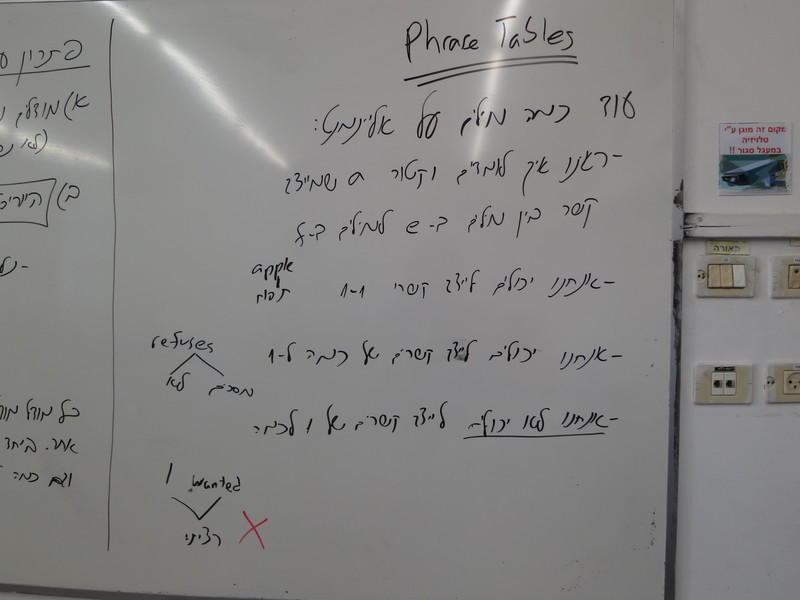 Phrase Tables
עוד כמה מילים על אליינמנט:
- ראנו איך לומדים וקטור a שמייצג
קשר בין מילים ב- e למילים ב- f
- אנחנו יכולים לייצג קשרי 1-1
apple
תפוח
- אנחנו יכולים לייצג קשרים של כמה ל-1
refuses
לא מסכים
- אנחנו לא יכולים לייצג קשרים של 1 לכמה
I wanted
רציתי X
פתרון
א) מודלים
(לא
ב)
כל מודל
אחר. ביחד
וגם כמה
מקום זה מוגן ע"י
טלויזיה
במעגל סגור !!
תאורה